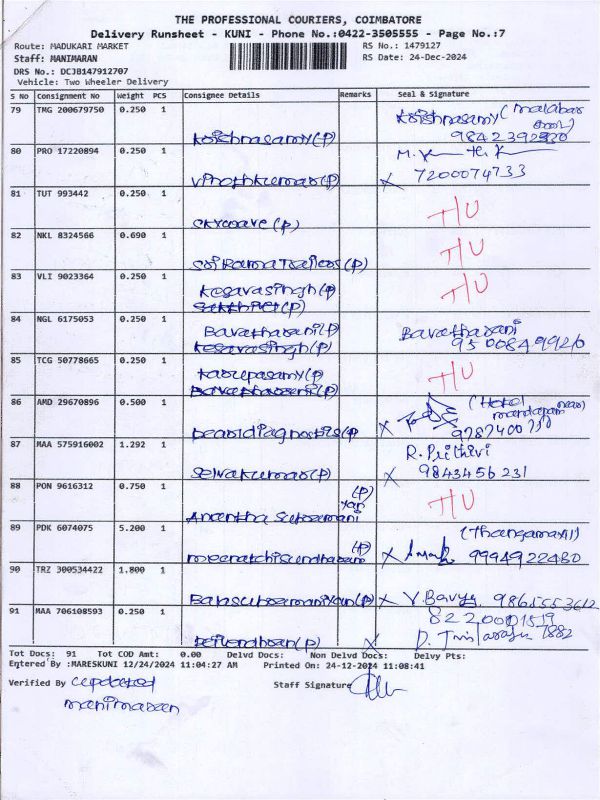 THE PROFESSIONAL COURIERS, COIMBATORE
Delivery Runsheet - KUNI - Phone No.:0422-3505555 - Page No.:7
Route: MADUKARI MARKET RS No.: 1479127
Staff: MANIMARAN RS Date: 24-Dec-2024
DRS No.: DCJB147912707
Vehicle: Two Wheeler Delivery
S No Consignment No Weight PCS Consignee Details Remarks Seal & Signature
79 TMG 200679750 0.250 1 Krishnasamy (P) Krishnasamy (malabar
9842392980
80 PRO 17220894 0.250 1 Vinothkumar (P) X 7200074733
81 TUT 993442 0.250 1 Skywave (P) T/U
82 NKL 8324566 0.690 1 (P) T/U
83 VLI 9023364 0.250 1 Kesavasingh (P) T/U
Sakthivel (P)
84 NGL 6175053 0.250 1 Bavatharani (P) Bavatharani
Kesavasingh (P)
85 TCG 50778665 0.250 1 Karupasamy (P) T/U
Bavatharani (P)
86 AMD 29670896 0.500 1 (P) X (Hotel
9787400730
87 MAA 575916002 1.292 1 Selvakumar (P) R. Prithivi
X 9843456231
88 PON 9616312 0.750 1 Anantha Subramani yan (P) T/U
89 PDK 6074075 5.200 1 Meenatchisundharam (P) X 9994922480
90 TRZ 300534422 1.800 1 Balasubramaniyan (P) X V. Bavya 9865553612
91 MAA 706108593 0.250 1 (P) X 8220001519
D.
Tot Docs: 91 Tot COD Amt: 0.00 Delvd Docs: Non Delvd Docs: Delvy Pts:
Entered By :MARESKUNI 12/24/2024 11:04:27 AM Printed On: 24-12-2024 11:08:41
Verified By updated Staff Signature
Manimaran